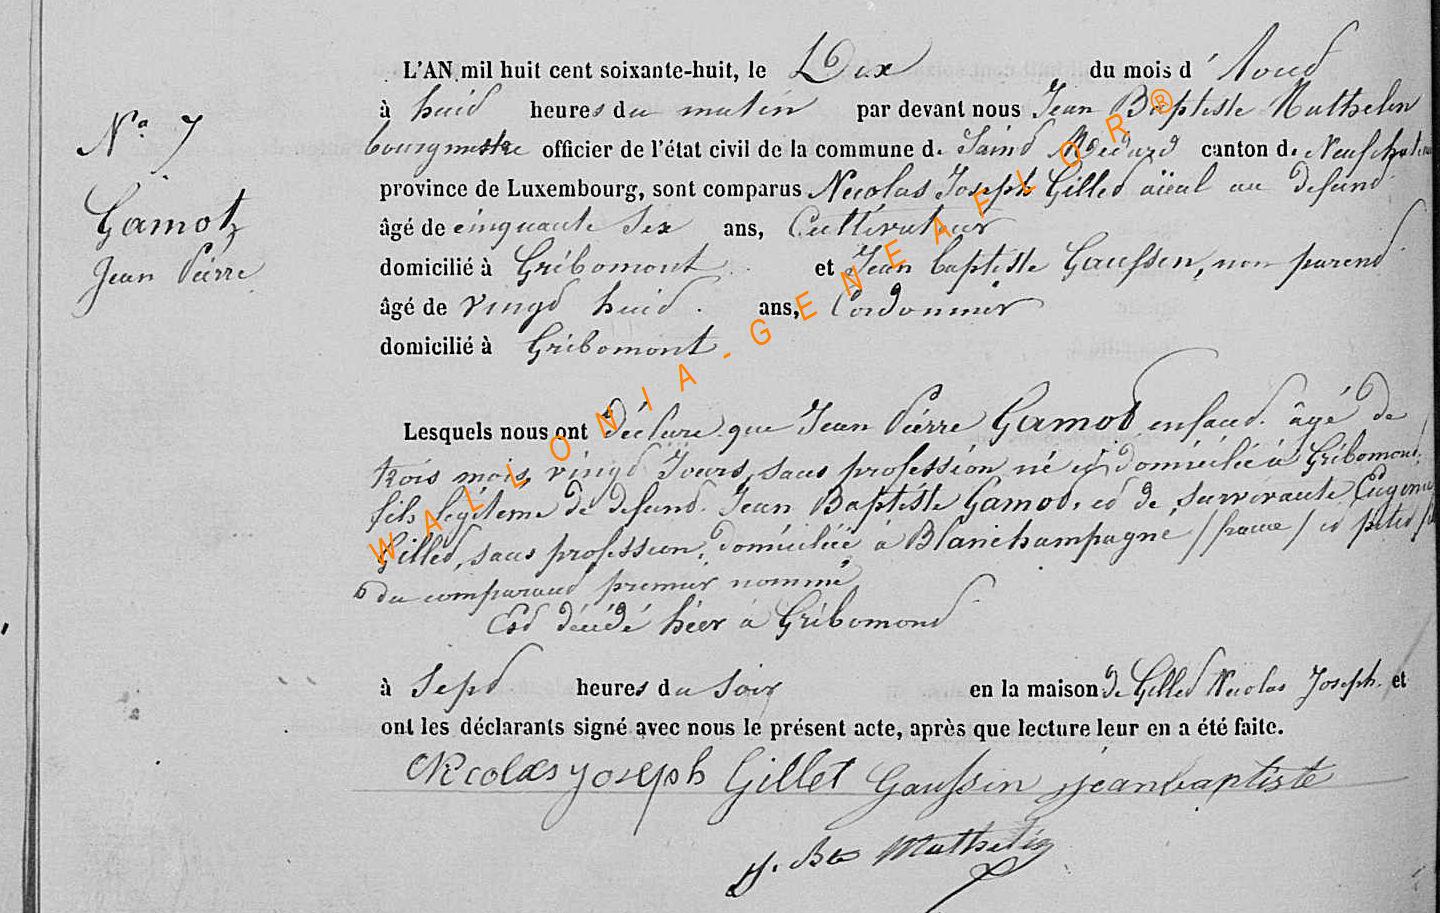 L'AN mil huit cent soixante-huit, le Dix du mois d' Aout
N° 7 à huit heures du matin par devant nous Jean Baptiste Mathelin
bourgmestre officier de l'état civil de la commune de Saint Médard canton de Neufchateau
Gamot province de Luxembourg, sont comparus Nicolas Joseph Gillet aïeul au defunt
âgé de cinquante Six ans, Cultivateur
Jean Pierre domicilié à Gribomont et Jean baptiste Gaussin, non parent
âgé de vingt huit ans, Cordonnier
domicilié à Gribomont
Lesquels nous ont Déclaré que Jean Pierre Gamot enfant âgé de
trois mois, vingt Jours, sans profession né et domicilié à Gribomont,
fils légiteme de defunt Jean Baptiste Gamot, et de survivante Eugenie
Gillet, sans profession, domiciliée à Blanchampagne / france / et petit fils
du comparant premier nommé
Est décédé hier à Gribomont
à Sept heures du Soir en la maison de Gillet Nicolas Joseph. et
ont les déclarants signé avec nous le présent acte, après que lecture leur en a été faite.
Nicolas joseph Gillet Gaussin jeanbaptiste
J. Bte Mathelin
WALLONIA-GENEAFLOR®